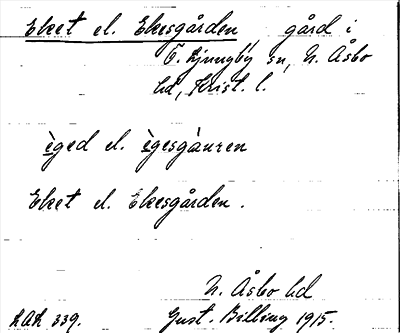 Eket el. Ekesgården, gård i
Ö. Ljungby sn, N. Åsbo
hd, Krist. l.
èged el. ègesgàuren
Eket el. Ekesgården.
N. Åsbo hd
LAL 339. Gust. Billing 1915.